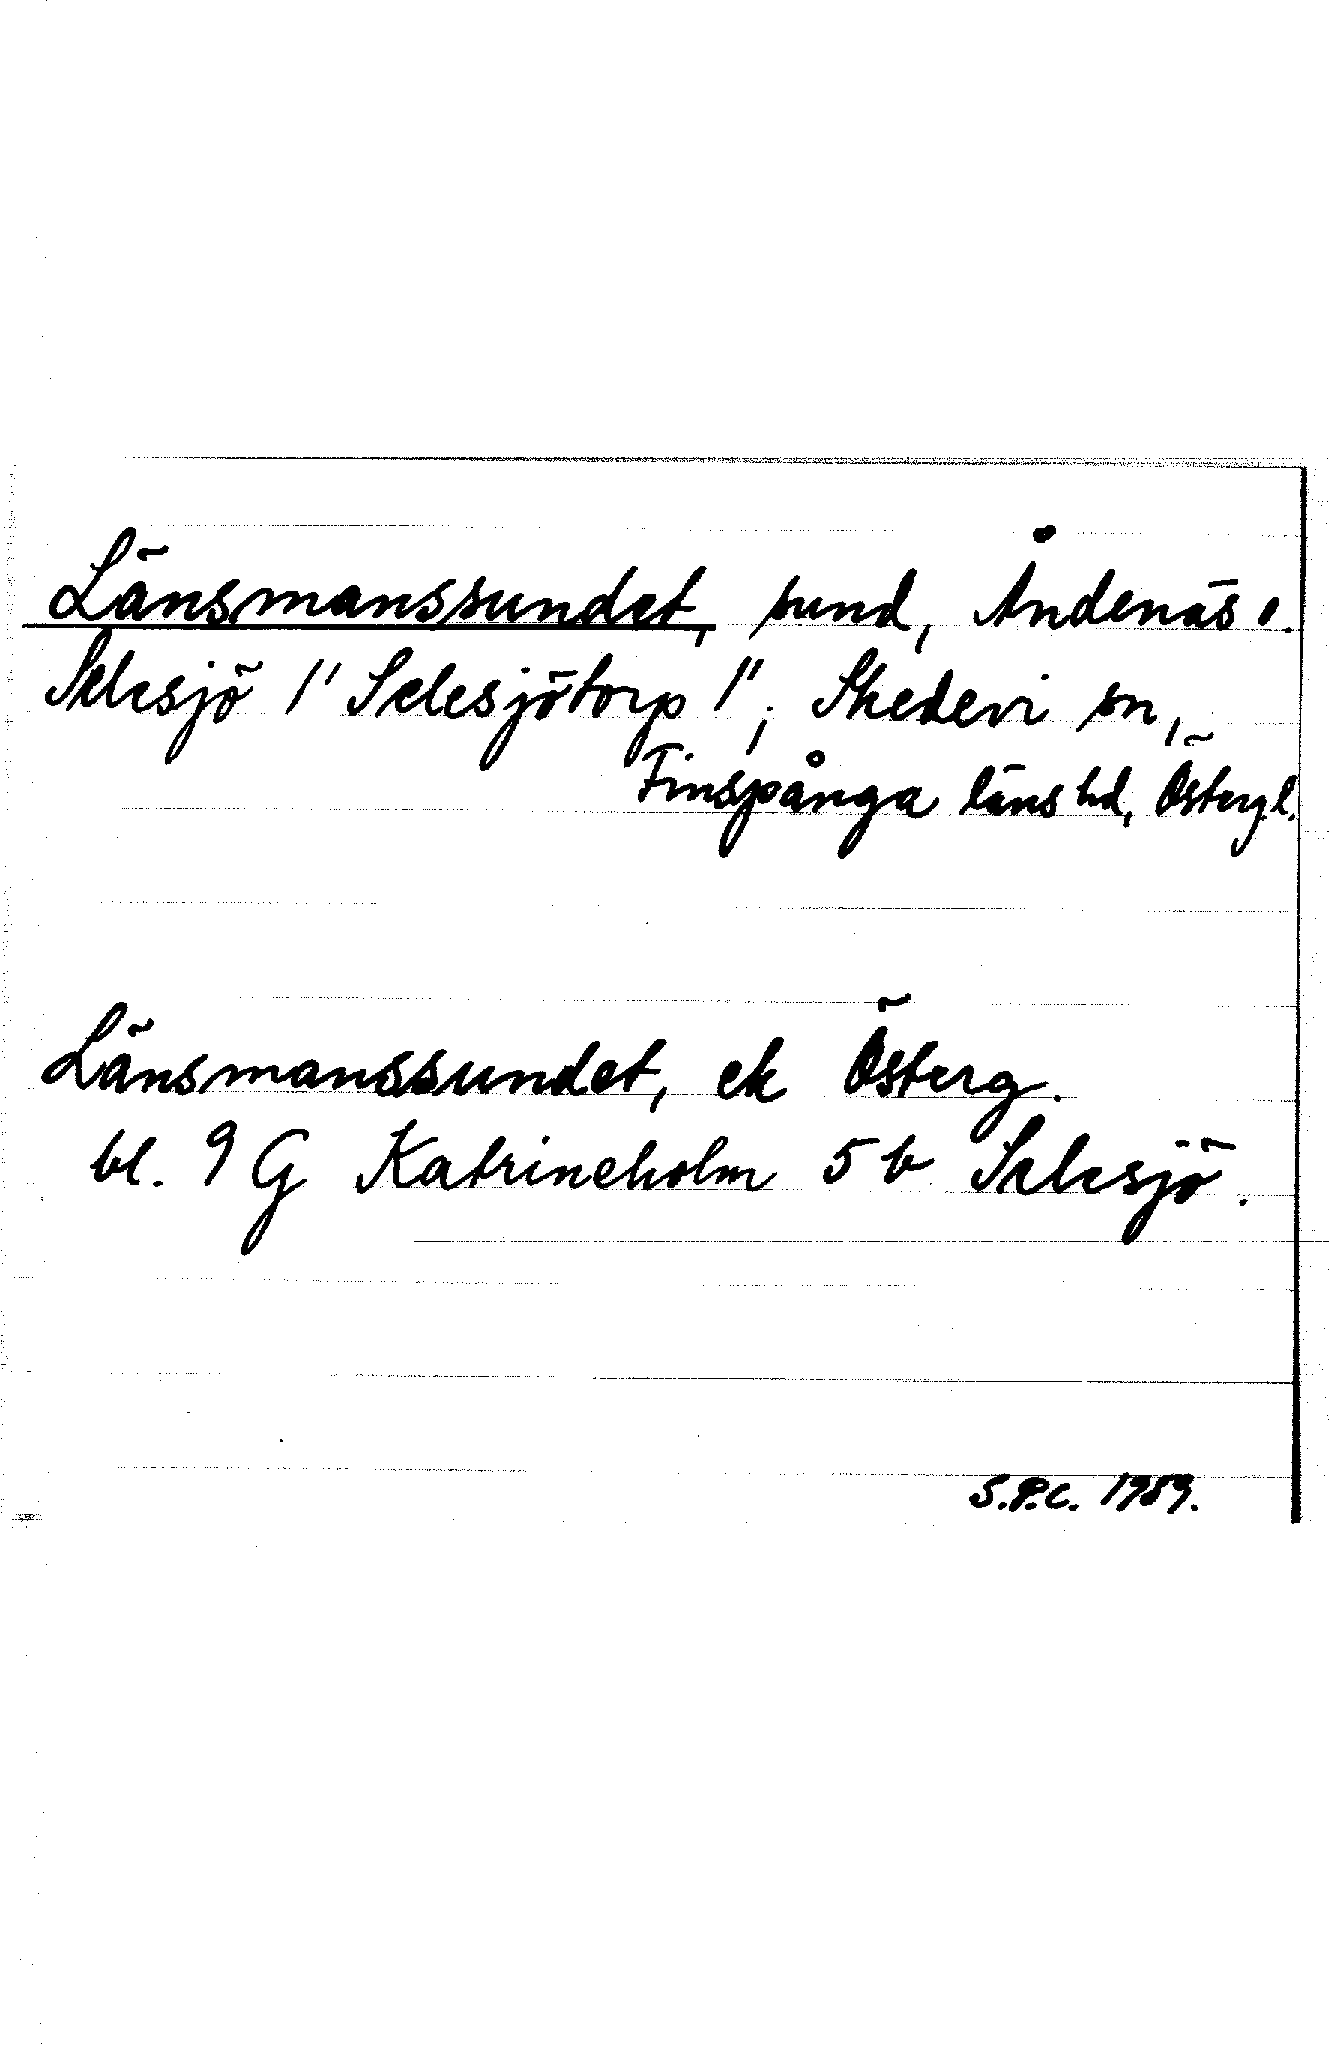 Länsmanssundet, sund, Åndenäs 1.
Selesjö 1" Selesjötorp 1", Skedevi sn,
Finspånga läns hd, Östergl.
Länsmanssundet, ek Österg.
bl. 9 G Katrineholm 5 b Selesjö.
S.P.C. 1989.